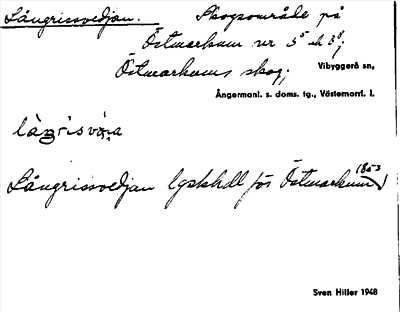 Långrissvedjan. Skogsområde på
Östmarkum nr 5⁵ och 3⁸;
Östmarkums skog; Vibyggerå sn,
Ångermanl. s. doms. tg., Västernorrl. l.
Långrissvedjan (gskhdl för Östmarkum 1853)
Sven Hiller 1948